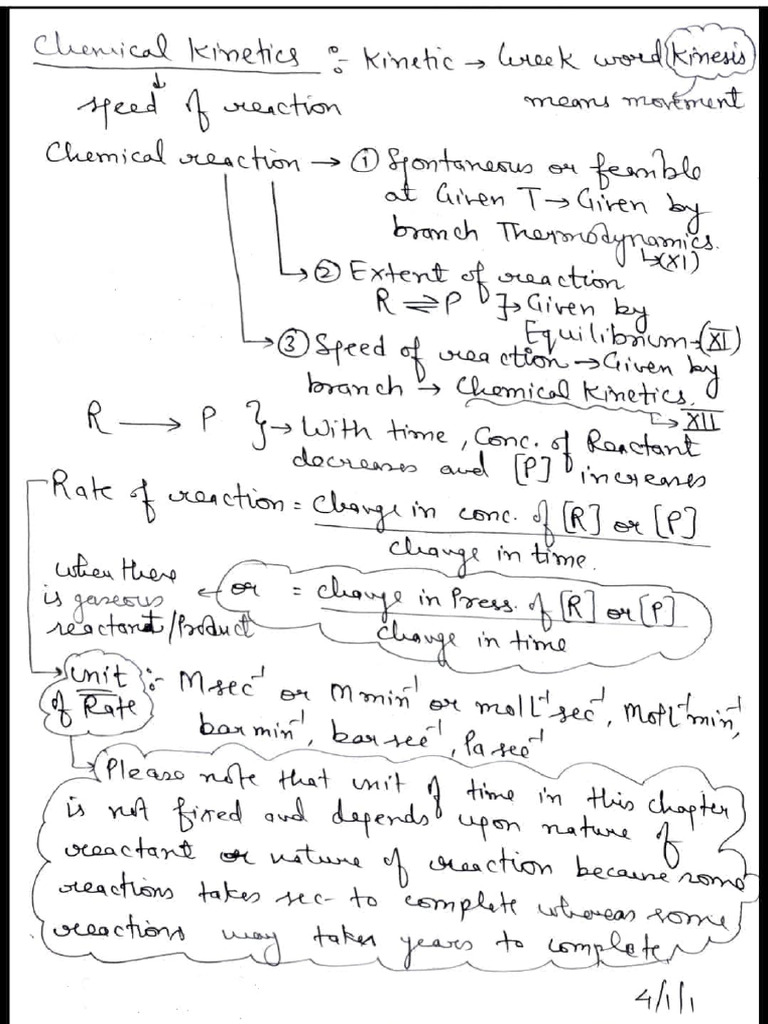 Chemical Kinetics :- Kinetic → Greek word Kinesis
↓
speed of reaction means movement
Chemical reaction → ① Spontaneous or feasible
at Given T → Given by
branch Thermodynamics.
↳(XI)
↳② Extent of reaction
R ⇌ P }→ Given by
Equilibrium → (XI)
→③ Speed of reaction → Given by
branch → Chemical Kinetics.
↳ XII
R → P }→ With time, Conc. of Reactant
decreases and [P] increases
Rate of reaction = Change in conc. of [R] or [P]
change in time.
when there
is gaseous ← or = change in Press. of [R] or [P]
reactant/Product change in time
Unit :- M sec⁻¹ or M min⁻¹ or mol L⁻¹ sec⁻¹, Mol L⁻¹ min⁻¹,
of Rate bar min⁻¹, bar sec⁻¹, Pa sec⁻¹
↳ Please note that unit of time in this chapter
is not fixed and depends upon nature of
reactant or nature of reaction because some
reactions takes sec- to complete whereas some
reactions may takes years to complete
4/1/1